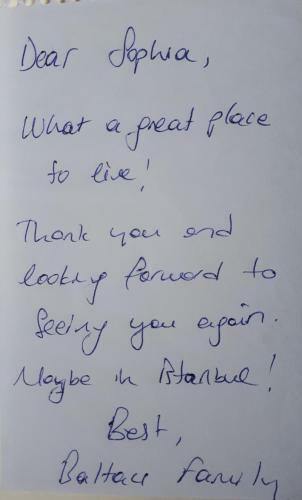 Dear Sophia,
What a great place
to live!
Thank you and
looking forward to
seeing you again.
Maybe in Istanbul!
Best,
Baltacı family